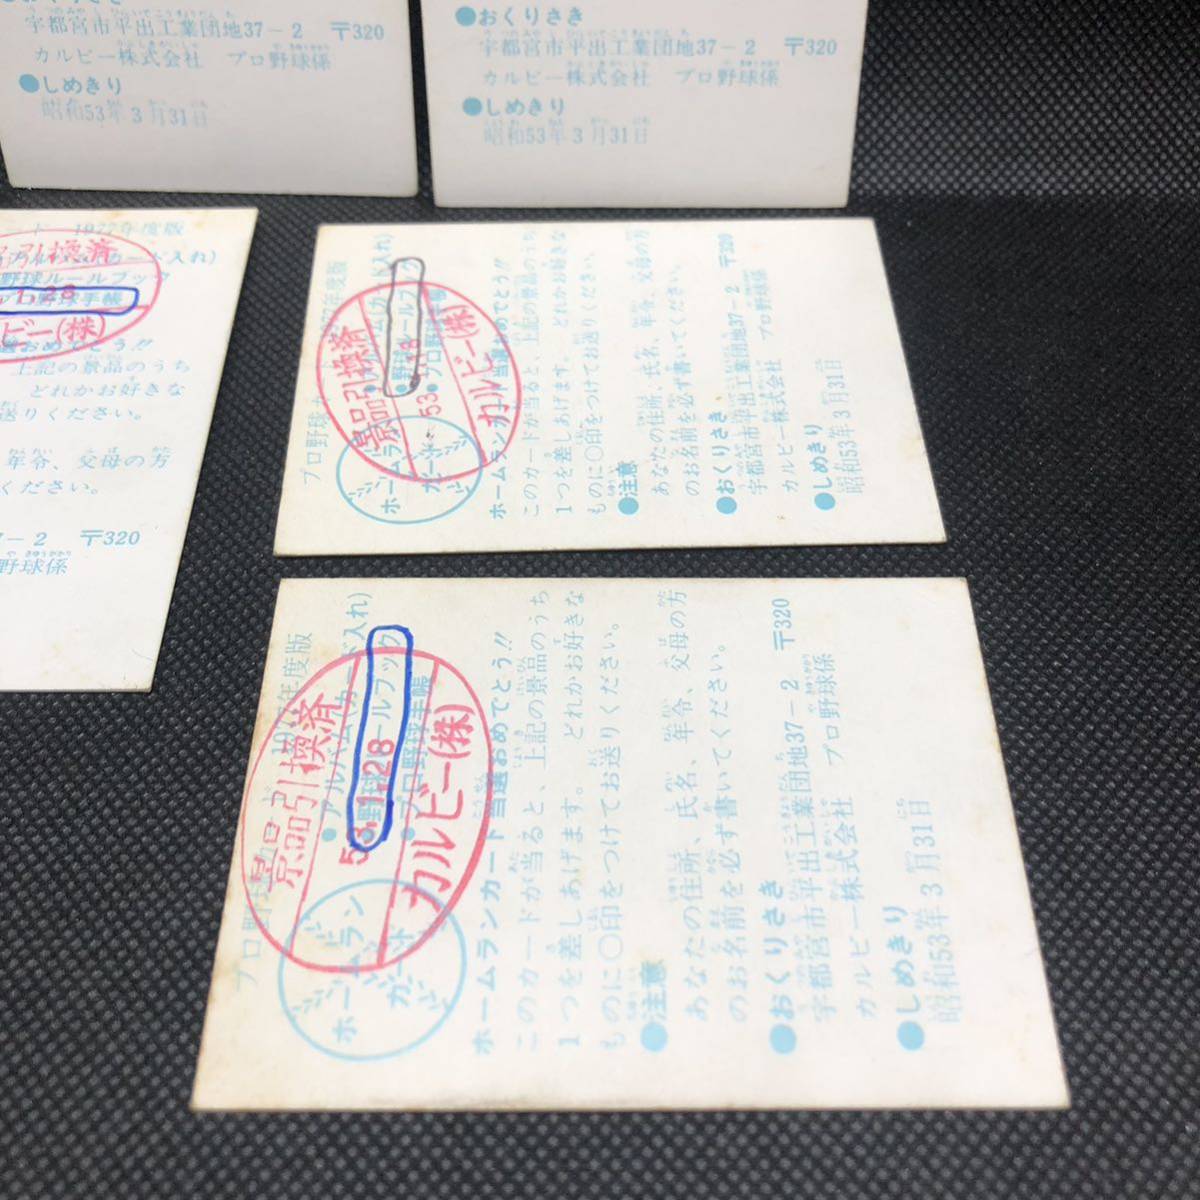 ●おくりさき
宇都宮市平出工業団地37-2 〒320
カルビー株式会社 プロ野球係
●しめきり
昭和53年3月31日
●おくりさき
宇都宮市平出工業団地37-2 〒320
カルビー株式会社 プロ野球係
●しめきり
昭和53年3月31日
1977年度版
カード入れ)
野球ルールブック
野球手帳
引換済
1.28
ビー(株)
選おめでとう!!
上記の景品のうち
どれかお好きな
送りください。
年令、父母の方
ください。
37-2 〒320
野球係
プロ野球カード 1977年度版
●アルバム(カード入れ)
●野球ルールブック
●プロ野球手帳
景品引換済
53
カルビー(株)
ホームラン
カード
ホームランカード当選おめでとう!!
このカードが当ると、上記の景品のうち
1つを差しあげます。どれかお好きな
ものに○印をつけてお送りください。
●注意
あなたの住所、氏名、年令、父母の方
のお名前を必ず書いてください。
●おくりさき
宇都宮市平出工業団地37-2 〒320
カルビー株式会社 プロ野球係
●しめきり
昭和53年3月31日
プロ野球カード 1977年度版
●アルバム(カード入れ)
●野球ルールブック
●プロ野球手帳
景品引換済
53.1.28
カルビー(株)
ホームラン
カード
ホームランカード当選おめでとう!!
このカードが当ると、上記の景品のうち
1つを差しあげます。どれかお好きな
ものに○印をつけてお送りください。
●注意
あなたの住所、氏名、年令、父母の方
のお名前を必ず書いてください。
●おくりさき
宇都宮市平出工業団地37-2 〒320
カルビー株式会社 プロ野球係
●しめきり
昭和53年3月31日